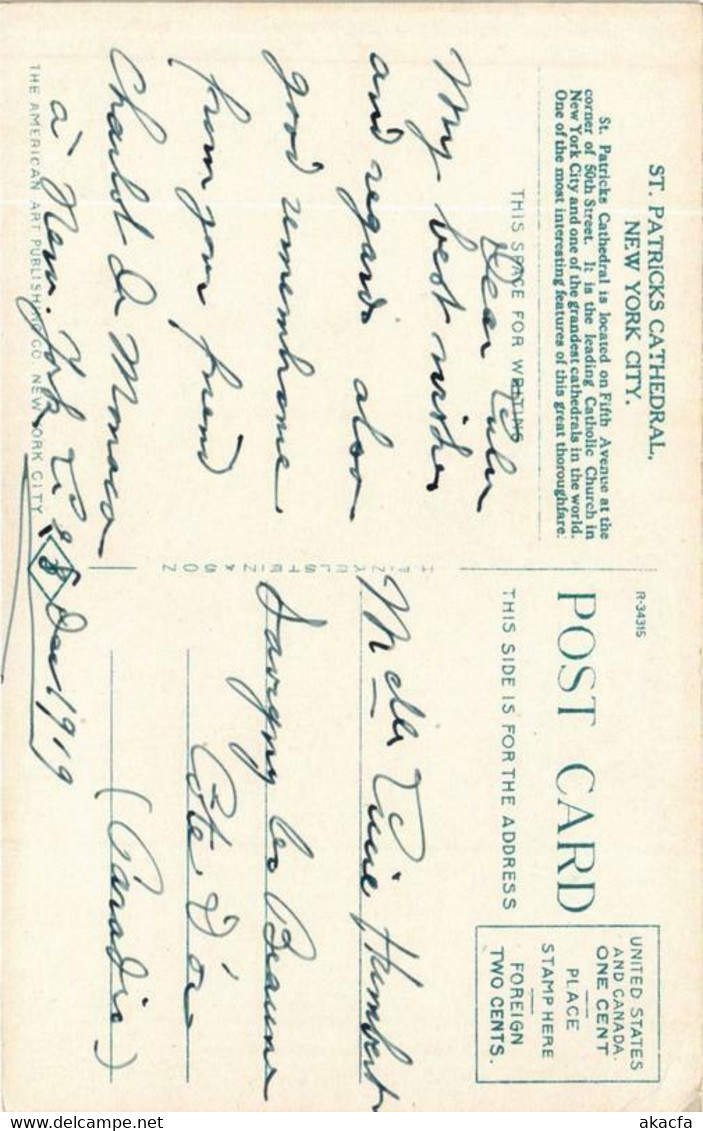 ST. PATRICKS CATHEDRAL,
NEW YORK CITY.
St. Patricks Cathedral is located on Fifth Avenue at the
corner of 50th Street. It is the leading Catholic Church in
New York City and one of the grandest cathedrals in the world.
One of the most interesting features of this great thoroughfare.
THIS SPACE FOR WRITING
Dear
My best wishes
and regards also
good rememhome
from your friend
Charlot De Monaco
à New-York
8 Dec 1919
THE AMERICAN ART PUBLISHING CO. NEW YORK CITY
R-34315
POST CARD
THIS SIDE IS FOR THE ADDRESS
UNITED STATES
AND CANADA.
ONE CENT
PLACE
STAMP HERE
FOREIGN
TWO CENTS.
Melle Humbert
Savigny les Beaune
Côte d'or
(Paradis)
akacfa